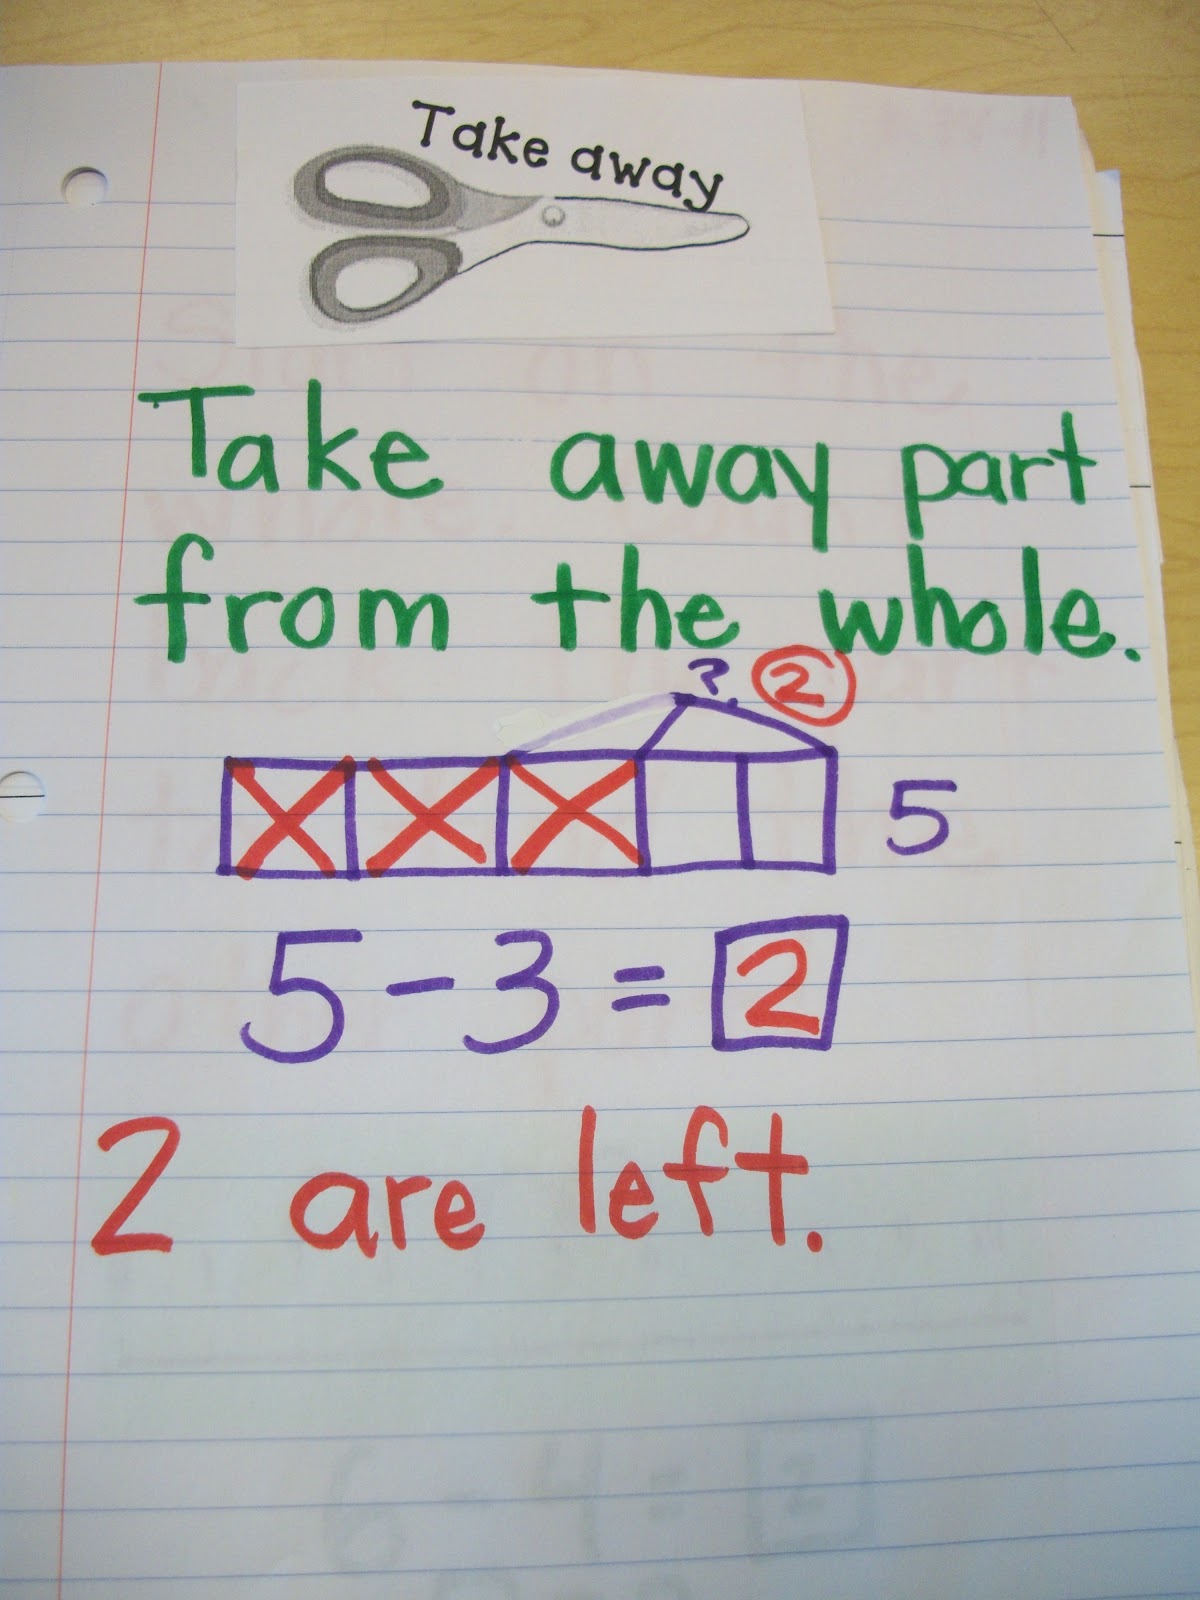 Take away
Take away part
from the whole.
? 2
5
5 - 3 = 2
2 are left.